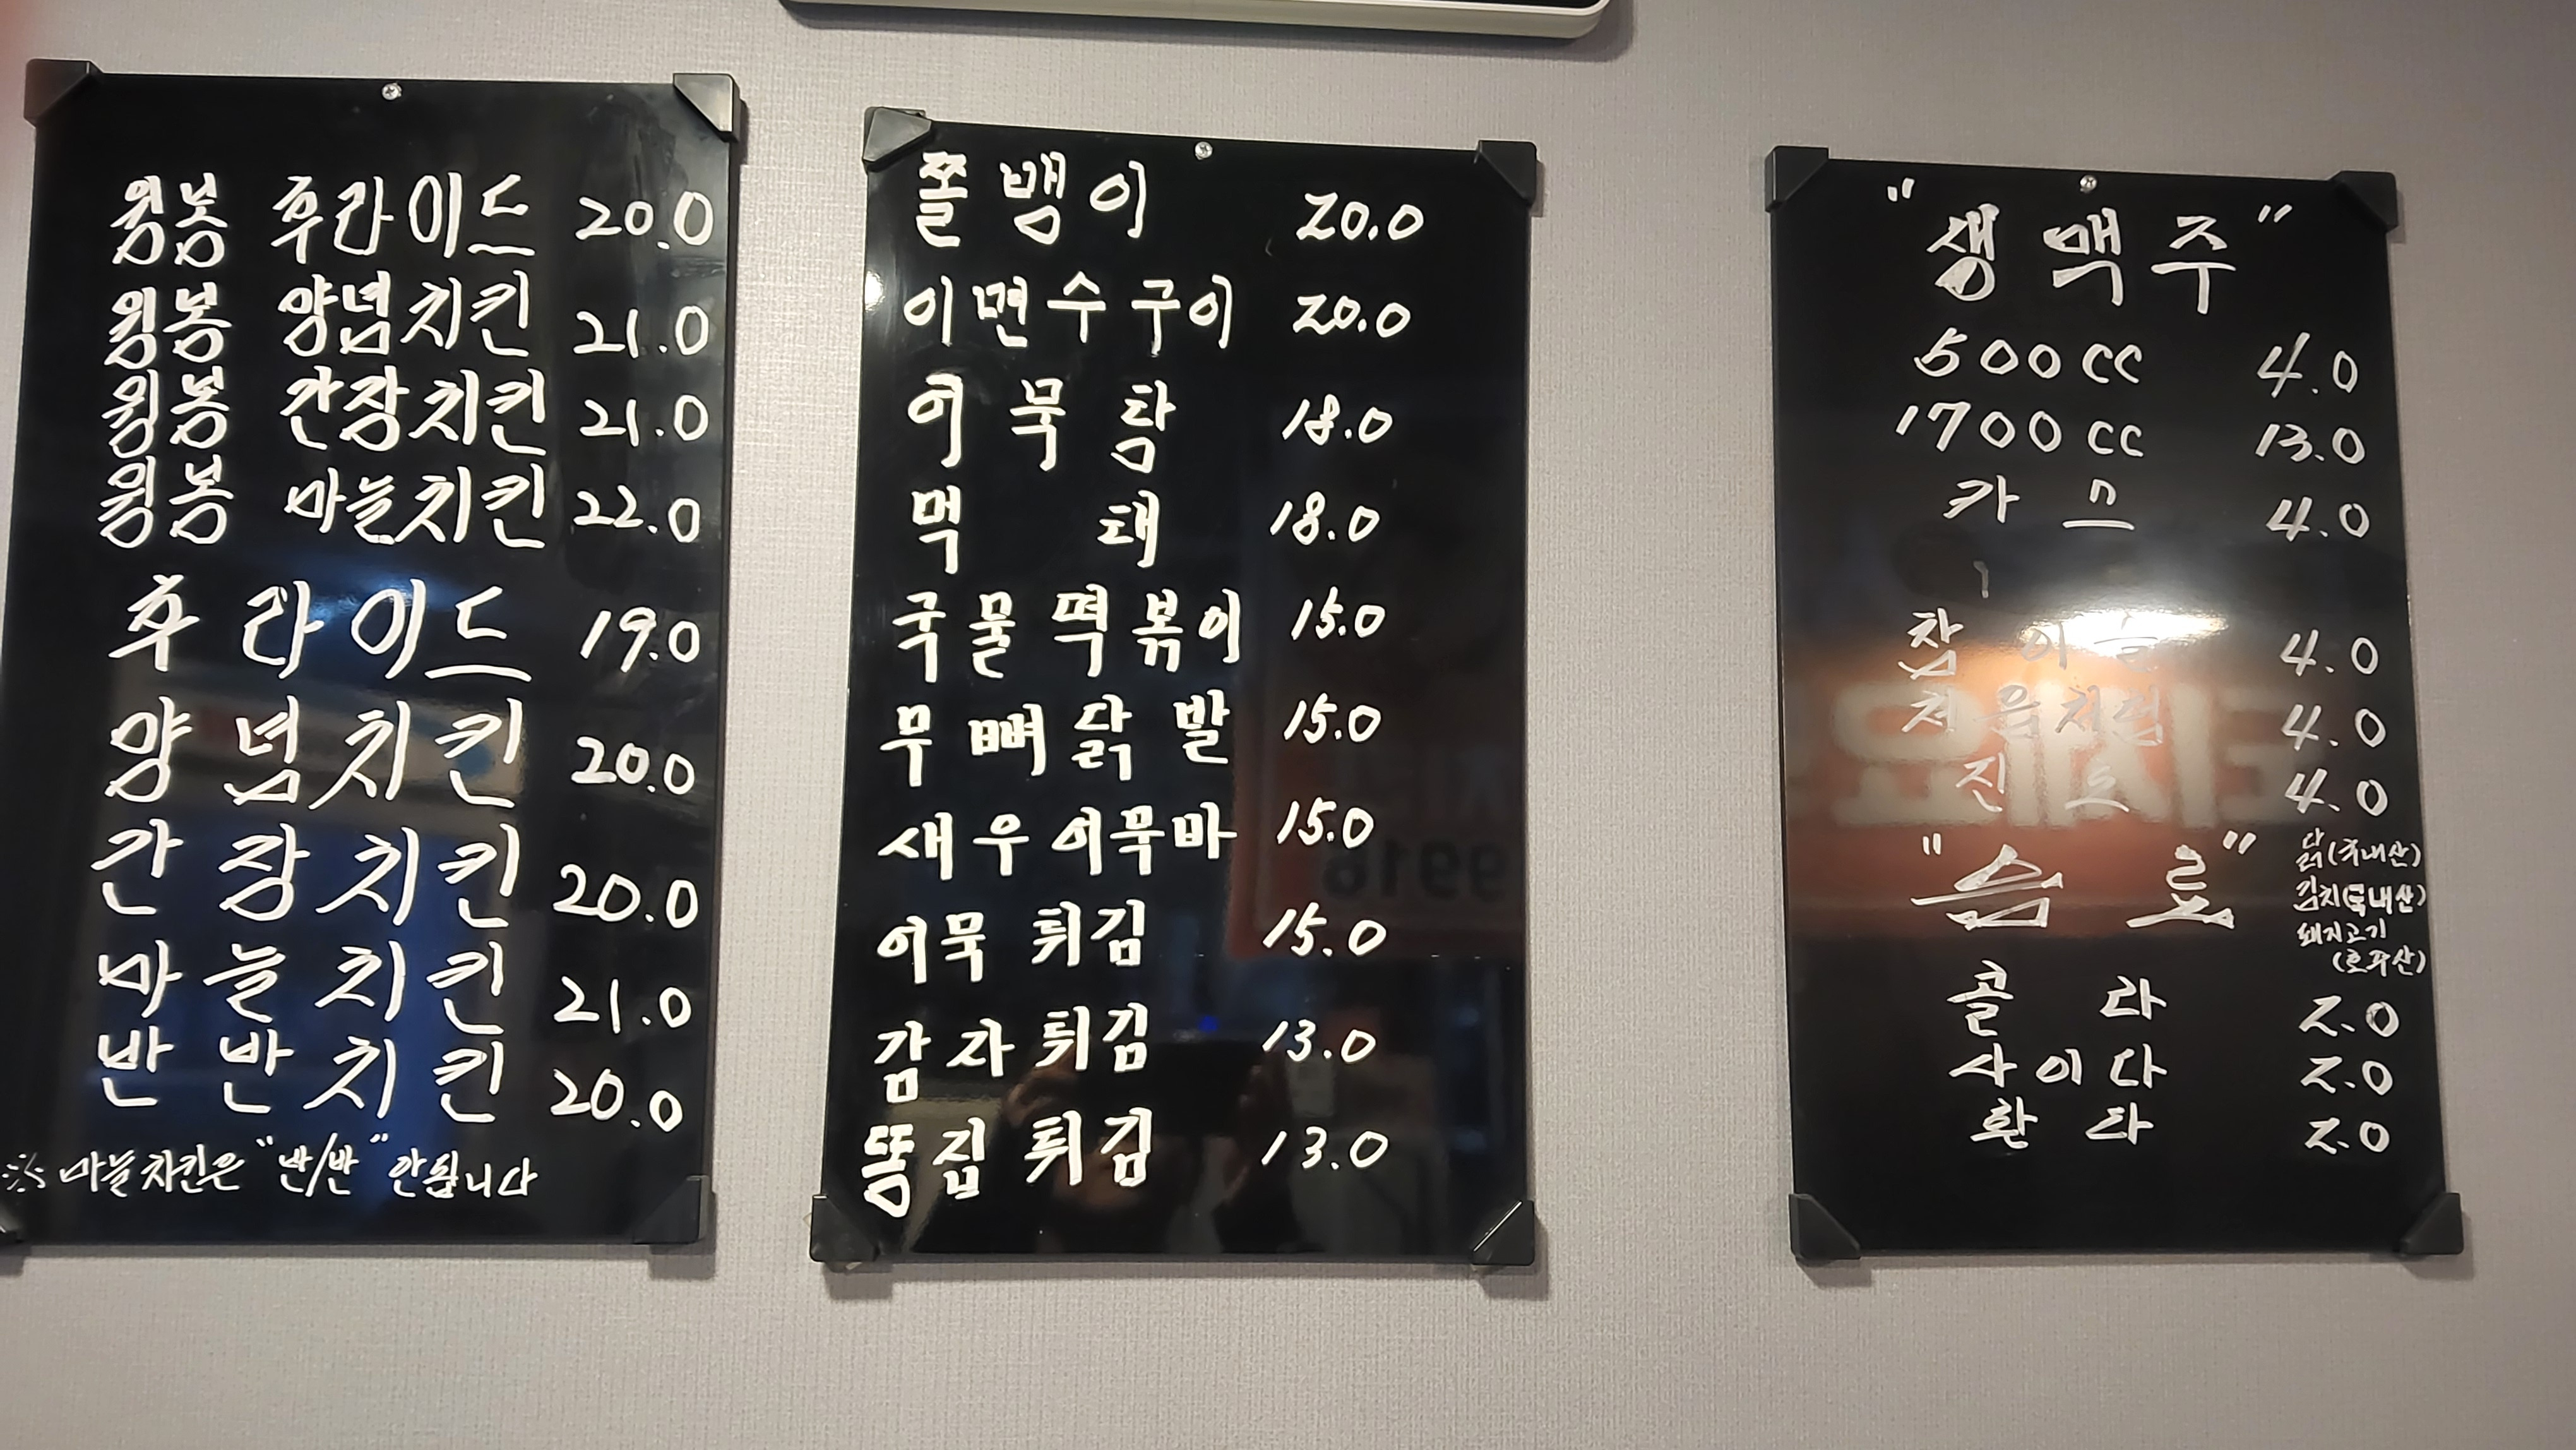 윙봉 후라이드 20.0
윙봉 양념치킨 21.0
윙봉 간장치킨 21.0
윙봉 마늘치킨 22.0
후라이드 19.0
양념치킨 20.0
간장치킨 20.0
마늘치킨 21.0
반반치킨 20.0
※ 마늘치킨은 "반/반" 안됩니다
쫄뱅이 20.0
이면수구이 20.0
어묵탕 18.0
먹태 18.0
국물떡볶이 15.0
무뼈닭발 15.0
새우어묵바 15.0
어묵튀김 15.0
감자튀김 13.0
똥집튀김 13.0
"생맥주"
500cc 4.0
1700cc 13.0
카스 4.0
참이슬 4.0
처음처럼 4.0
진로 4.0
"음료"
닭(국내산)
김치(국내산)
돼지고기
(호주산)
콜라 2.0
사이다 2.0
환타 2.0